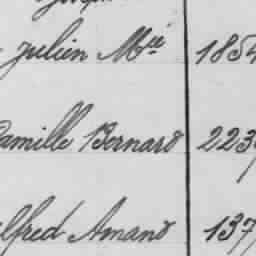 Julien Mce 1854
Camille Bernard 223
Alfred Amand 137